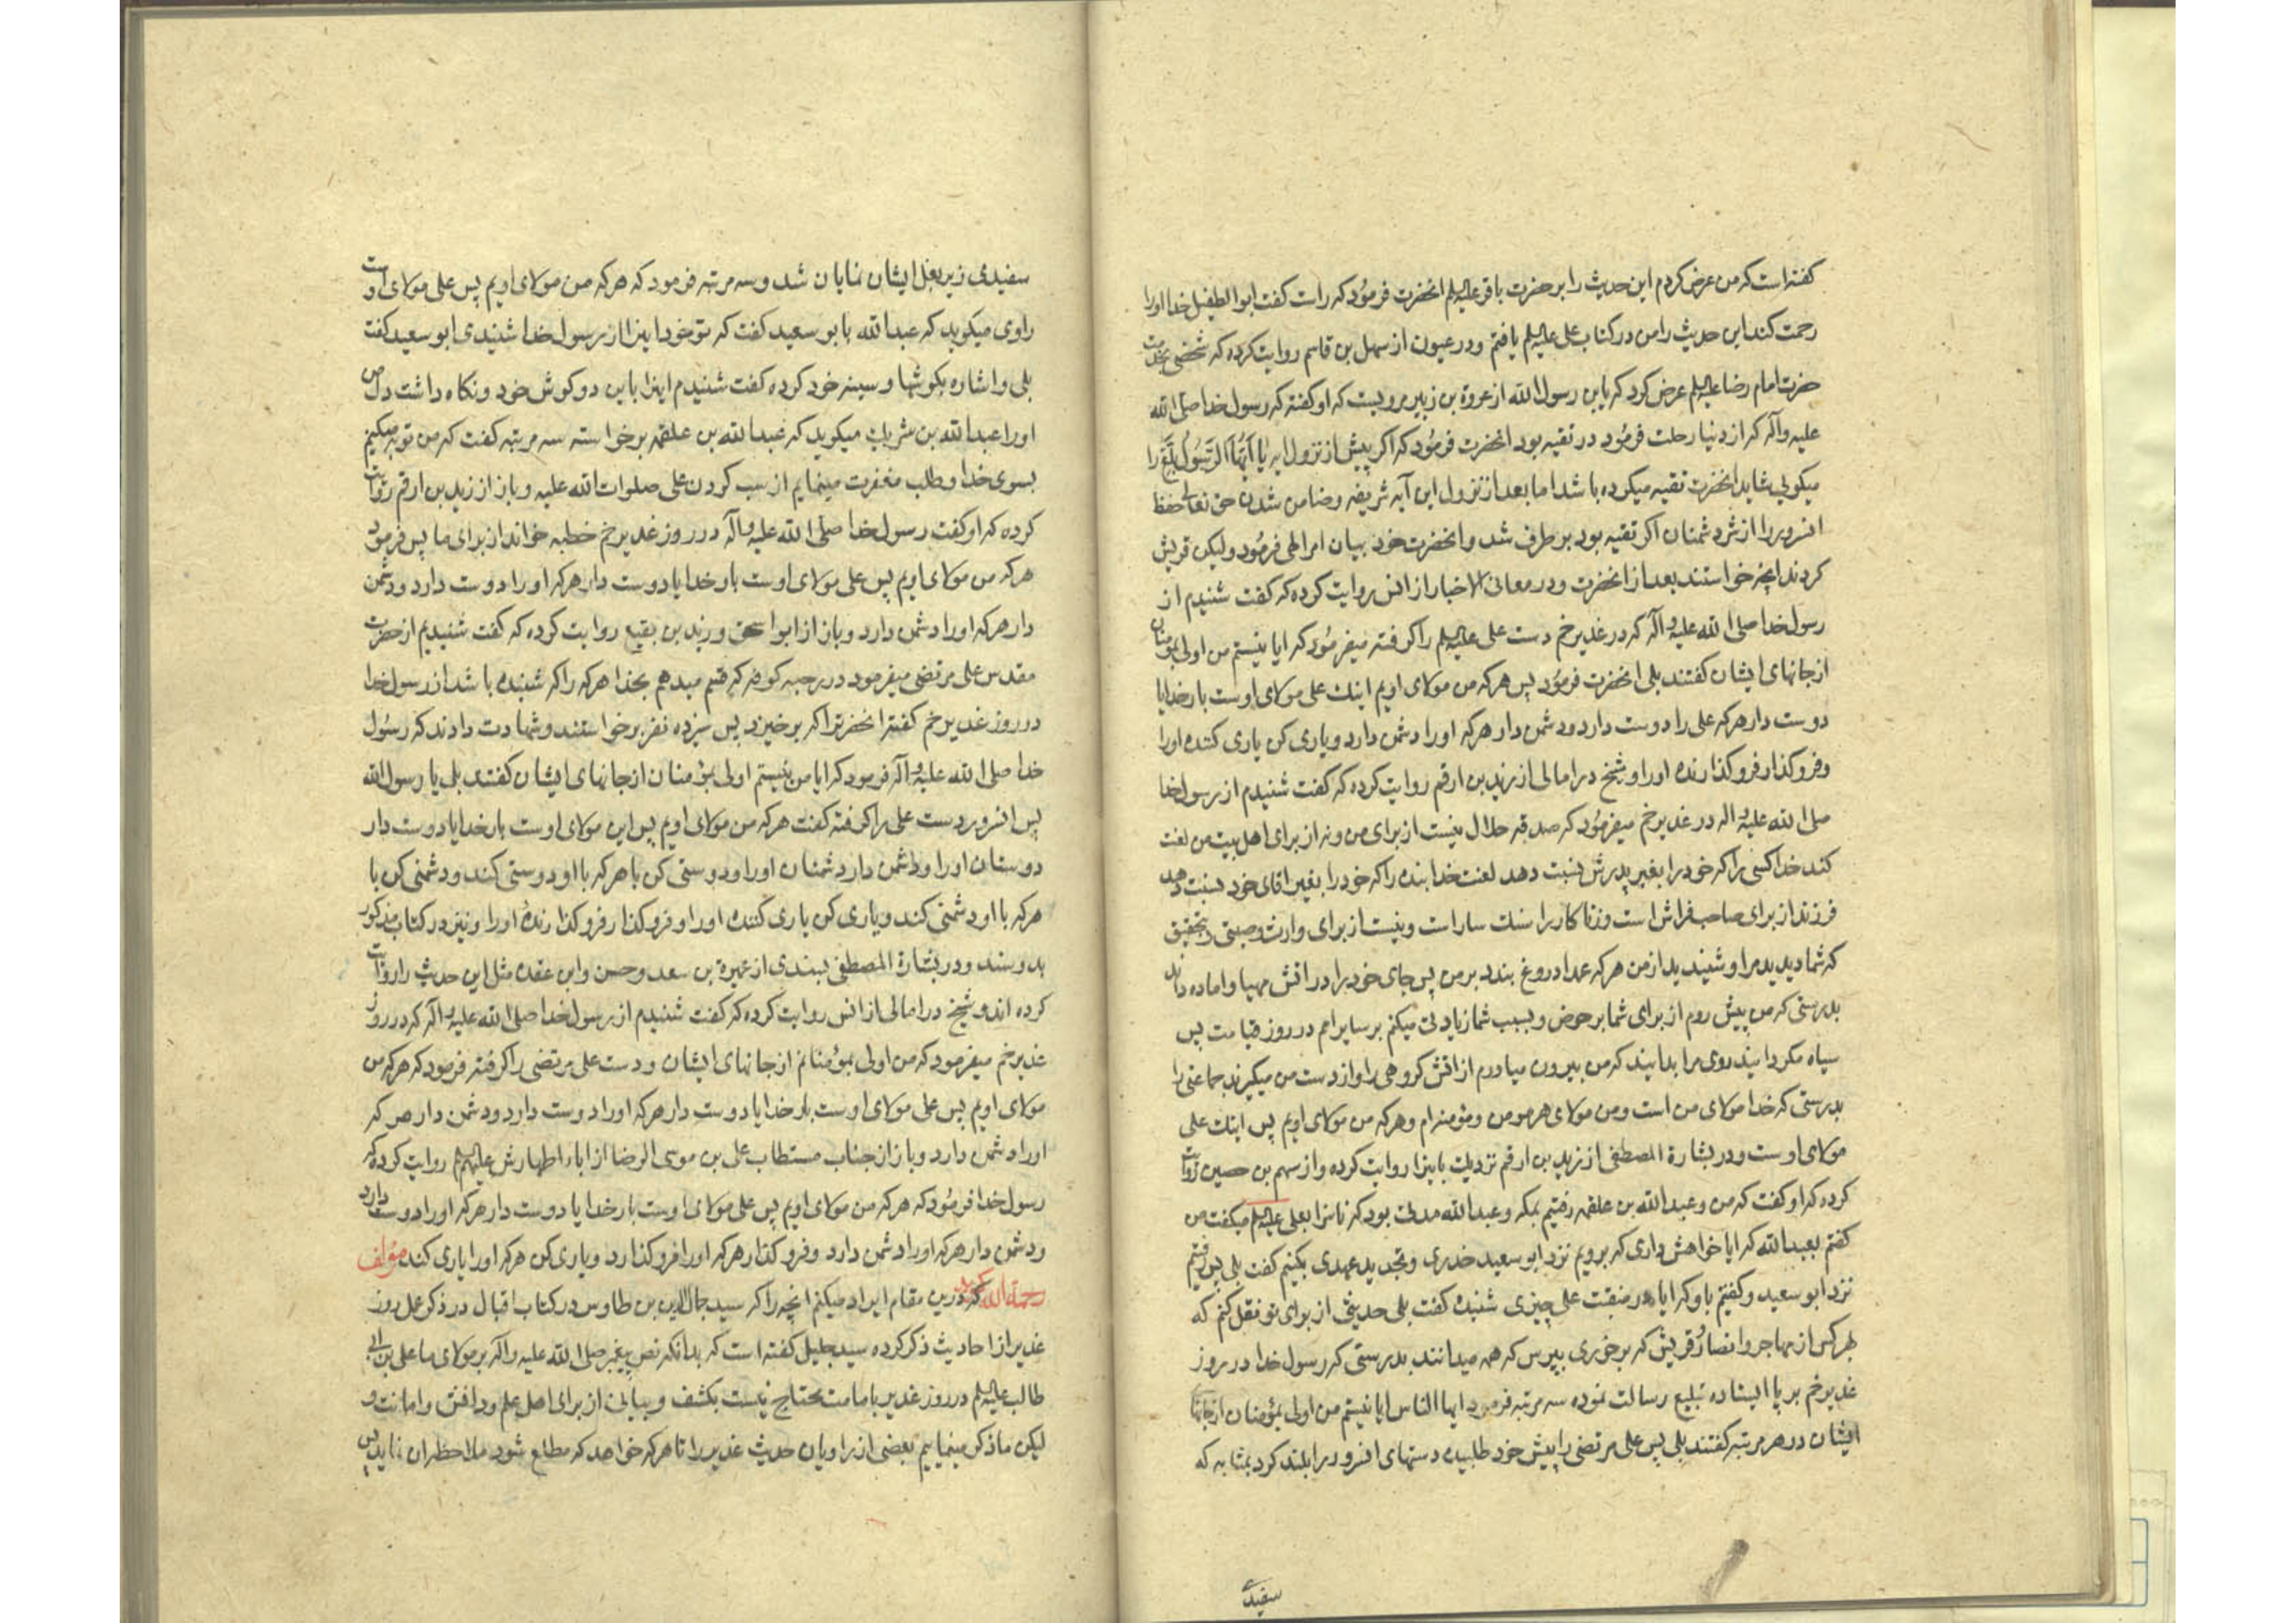 گفته است که من عرض کردم این حدیث را بر حضرت باقر علیه السلم انحضرت فرمود که راست گفت ابو الطفیل خدا اورا
رحمت کند این حدیث را من در کتاب علی علیه السلم یافتم و در عیون از سهل بن قاسم روایت کرده که شخصی بخدمت
حضرت امام رضا علیه السلم عرض کرد که یابن رسول الله از عروة بن زبیر مرویست که او گفته که رسول خدا صلی الله
علیه وآله که از دنیا رحلت فرمود در تقیه بود انحضرت فرمود که اکر پیش از نزول ایه یَا اَیُّهَا الرَّسُولُ بَلِّغْ را
میکوئی شاید انحضرت تقیه میکرده باشد اما بعد از نزول این آیه شریفه و ضامن شدن حق تعالی حفظ
انسرور را از شر دشمنان اکر تقیه بود برطرف شد و انحضرت خود بیان امر الهی فرمود ولیکن قریش
کردند انچه خواستند بعد از انحضرت و در معانی الاخبار از انس روایت کرده که گفت شنیدم از
رسول خدا صلی الله علیه وآله که در غدیر خم دست علی علیه السلم را کرفته میفرمود که ایا نیستم من اولی بمؤمنان
از جانهای ایشان گفتند بلی انحضرت فرمود پس هرکه من مولای اویم اینک علی مولای اوست بار خدایا
دوست دار هرکه علی را دوست دارد و دشمن دار هرکه اورا دشمن دارد و یاری کن یاری کننده اورا
و فرو کذار فرو کذارنده اورا و شیخ در امالی از زید بن ارقم روایت کرده که گفت شنیدم از رسول خدا
صلی الله علیه واله در غدیر خم میفرمود که صدقه حلال نیست از برای من و نه از برای اهل بیت من لعنت
کند خدا کسی را که خود را بغیر پدرش نسبت دهد لعنت خدا بنده را که خود را بغیر اقای خود نسبت دهد
فرزند از برای صاحب فراش است و زناکار را سنک سار است و نیست از برای وارث وصیتی بتحقیق
که شما دیدید مرا و شنیدید از من هرکه عمدا دروغ بندد بر من پس جای خود را در اتش مهیا و اماده داند
بدرستی که من پیش روم از برای شما بر حوض و بسبب شما زیادتی میکنم بر سایر امم در روز قیامت پس
سیاه مکردانید روی مرا بدانید که من بیرون میاورم از اتش کروهی را و از دست من میکیرند جماعتی را
بدرستی که خدا مولای من است و من مولای هر مومن و مؤمنه ام و هرکه من مولای اویم پس اینک علی
مولای اوست و در بشارة المصطفی از زید بن ارقم نزدیک باینرا روایت کرده و از سهم بن حصین روایت
کرده که او گفت که من و عبدالله بن علقمه رفتیم بمکه و عبدالله مدتی بود که ناسزا بعلی علیه السلم میکفت من
گفتم بعبدالله که ایا خواهش داری که برویم نزد ابو سعید خدری و تجدید عهدی بکنیم گفت بلی پس رفتیم
نزد ابو سعید و گفتیم باو که ایا در منقبت علی چیزی شنیده گفت بلی حدیثی از برای تو نقل کنم که
بهر کس از مهاجر و انصار و قریش که بر خوری بپرس که همه میدانند بدرستی که رسول خدا در روز
غدیر خم بر پا ایستاده تبلیغ رسالت نموده سه مرتبه فرمود ایها الناس ایا نیستم من اولی بمؤمنان از جانهای
ایشان در هر مرتبه گفتند بلی پس علی مرتضی را پیش خود طلبیده دستهای انسرور را بلند کرد بمثابه که
سفیدی
سفیدی زیر بغل ایشان نمایان شد و سه مرتبه فرمود که هرکه من مولای اویم پس علی مولای اوست
راوی میکوید که عبدالله بابو سعید گفت که تو خود اینرا از رسول خدا شنیدی ابو سعید گفت
بلی و اشاره بکوشها و سینه خود کرده گفت شنیدم اینرا باین دو کوش خود و نکاه داشت دل من
اورا عبدالله بن شریک میکوید که عبدالله بن علقمه برخواسته سه مرتبه گفت که من توبه میکنم
بسوی خدا و طلب مغفرت مینمایم از سب کردن علی صلوات الله علیه و باز از زید بن ارقم روایت
کرده که او گفت رسول خدا صلی الله علیه وآله در روز غدیر خم خطبه خواند از برای ما پس فرمود
هرکه من مولای اویم پس علی مولای اوست بار خدایا دوست دار هرکه اورا دوست دارد و دشمن
دار هرکه اورا دشمن دارد و باز از ابو اسحق و زید بن یقیع روایت کرده که گفت شنیدیم از حضرت
مقدس علی مرتضی میفرمود در رحبه کوفه که قسم میدهم بخدا هرکه را که شنیده باشد از رسول خدا
در روز غدیر خم گفته انحضرترا که برخیزد پس سیزده نفر برخواستند و شهادت دادند که رسول
خدا صلی الله علیه وآله فرمود که ایا من نیستم اولی بمؤمنان از جانهای ایشان گفتند بلی یا رسول الله
پس انسرور دست علی را کرفته گفت هرکه من مولای اویم پس این مولای اوست بار خدایا دوست دار
دوستان اورا و دشمن دار دشمنان اورا و دوستی کن با هرکه با او دوستی کند و دشمنی کن با
هرکه با او دشمنی کند و یاری کن یاری کننده اورا و فرو کذار فرو کذارنده اورا و نیز در کتاب مذکور
بدو سند و در بشارة المصطفی بسندی از عمیرة بن سعد و حسن و ابن عقده مثل این حدیث را روایت
کرده اند و شیخ در امالی از انس روایت کرده که گفت شنیدم از رسول خدا صلی الله علیه وآله که در روز
غدیر خم میفرمود که من اولی بمؤمنانم از جانهای ایشان و دست علی مرتضی را کرفته فرمود که هرکه من
مولای اویم پس علی مولای اوست بار خدایا دوست دار هرکه اورا دوست دارد و دشمن دار هر که
اورا دشمن دارد و باز از جناب مستطاب علی بن موسی الرضا از اباء اطهارش علیهم السلم روایت کرده که
رسول خدا فرمود که هرکه من مولای اویم پس علی مولای اوست بار خدایا دوست دار هرکه اورا دوست دارد
و دشمن دار هرکه اورا دشمن دارد و فرو کذار هرکه اورا فرو کذارد و یاری کن هرکه اورا یاری کند مؤلف
رحمة الله کوید که درین مقام ایراد میکنم انچه را که سید جمال الدین بن طاوس در کتاب اقبال در ذکر عمل روز
غدیر از احادیث ذکر کرده سید جلیل گفته است که بدانکه نص پیغمبر صلی الله علیه واله بر مولای ما علی بن ابی
طالب علیه السلم در روز غدیر بامامت محتاج نیست بکشف و بیانی از برای اهل علم و دافق و امانت و
لیکن ما ذکر مینماییم بعضی از راویان حدیث غدیر را تا هرکه خواهد که مطلع شود ملاحظه ان نماید پس